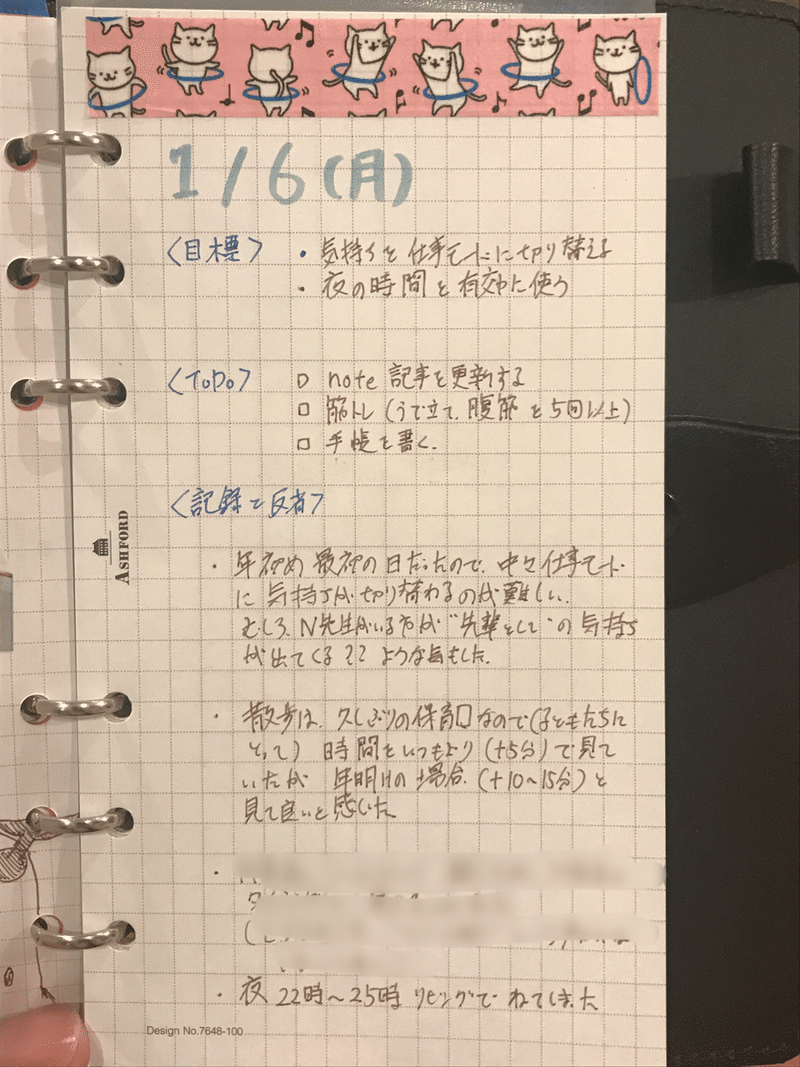 1/6(月)
〈目標〉 ・気持ちを仕事モードに切り替える
・夜の時間を有効に使う
〈ToDo〉 □ note 記事を更新する
□ 筋トレ (うで立て、腹筋を5回以上)
□ 手帳を書く。
〈記録と反省〉
ASHFORD
・年初め 最初の日だったので、中々仕事モード
に気持ちが切り替わるのが難しい。
むしろ、N先生がいる方が"先輩として"の気持ち
が出てくる?? ような気もした。
・散歩は、久しぶりの保育園なので(子どもたちに
とって) 時間をいつもより (+5分) で見て
いたが 年明けの場合、(+10〜15分) と
見て良いと感じた
・夜 22時〜25時 リビングで ねてしまった
Design No.7648-100